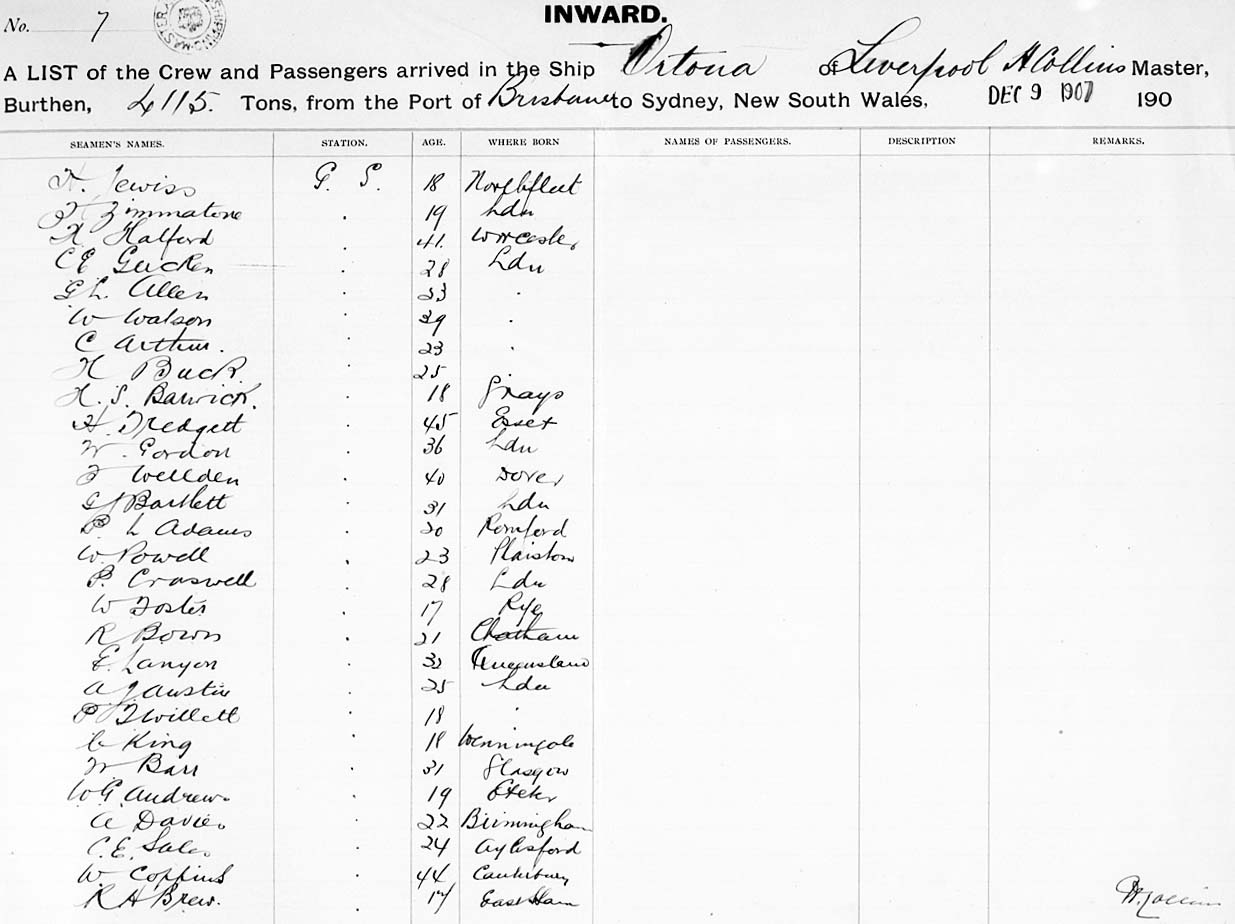 No. 7
INWARD.
A LIST of the Crew and Passengers arrived in the Ship Ortona of Liverpool H Collins Master,
Burthen, 4115. Tons, from the Port of Brisbane to Sydney, New South Wales, DEC 9 1907 190
SEAMEN'S NAMES. STATION. AGE. WHERE BORN NAMES OF PASSENGERS. DESCRIPTION REMARKS.
H. Jewiss G. S. 18 Northfleet
Zimmatore 19 Ldn
H Halford 41. Worcester
C E 28 Ldn
G L. Allen 23
W Watson 39
C Arthur. 23
H Buck. 25
H. S. Barwick. 18 Grays
H. Dredgett 45 Essex
W. Gordon 36 Ldn
F Wellden 40 Dover
G J Bartlett 31 Ldn
P. L Adams 20 Romford
W Powell 23 Plaistow
P. Craswell 28 Ldn
W Foster 17 Rye
R Bown 21 Chatham
E. Lanyon 32 Queensland
A J Austin 25 Ldn
P Twillett 18
C King 18
W Barr 31 Glasgow
W G Andrews 19 Exeter
A Davies 22 Birmingham
C. E. Sales 24 Aylesford
W Coppins 44 Canterbury
R H Brew. 17 East Ham
H. Collins